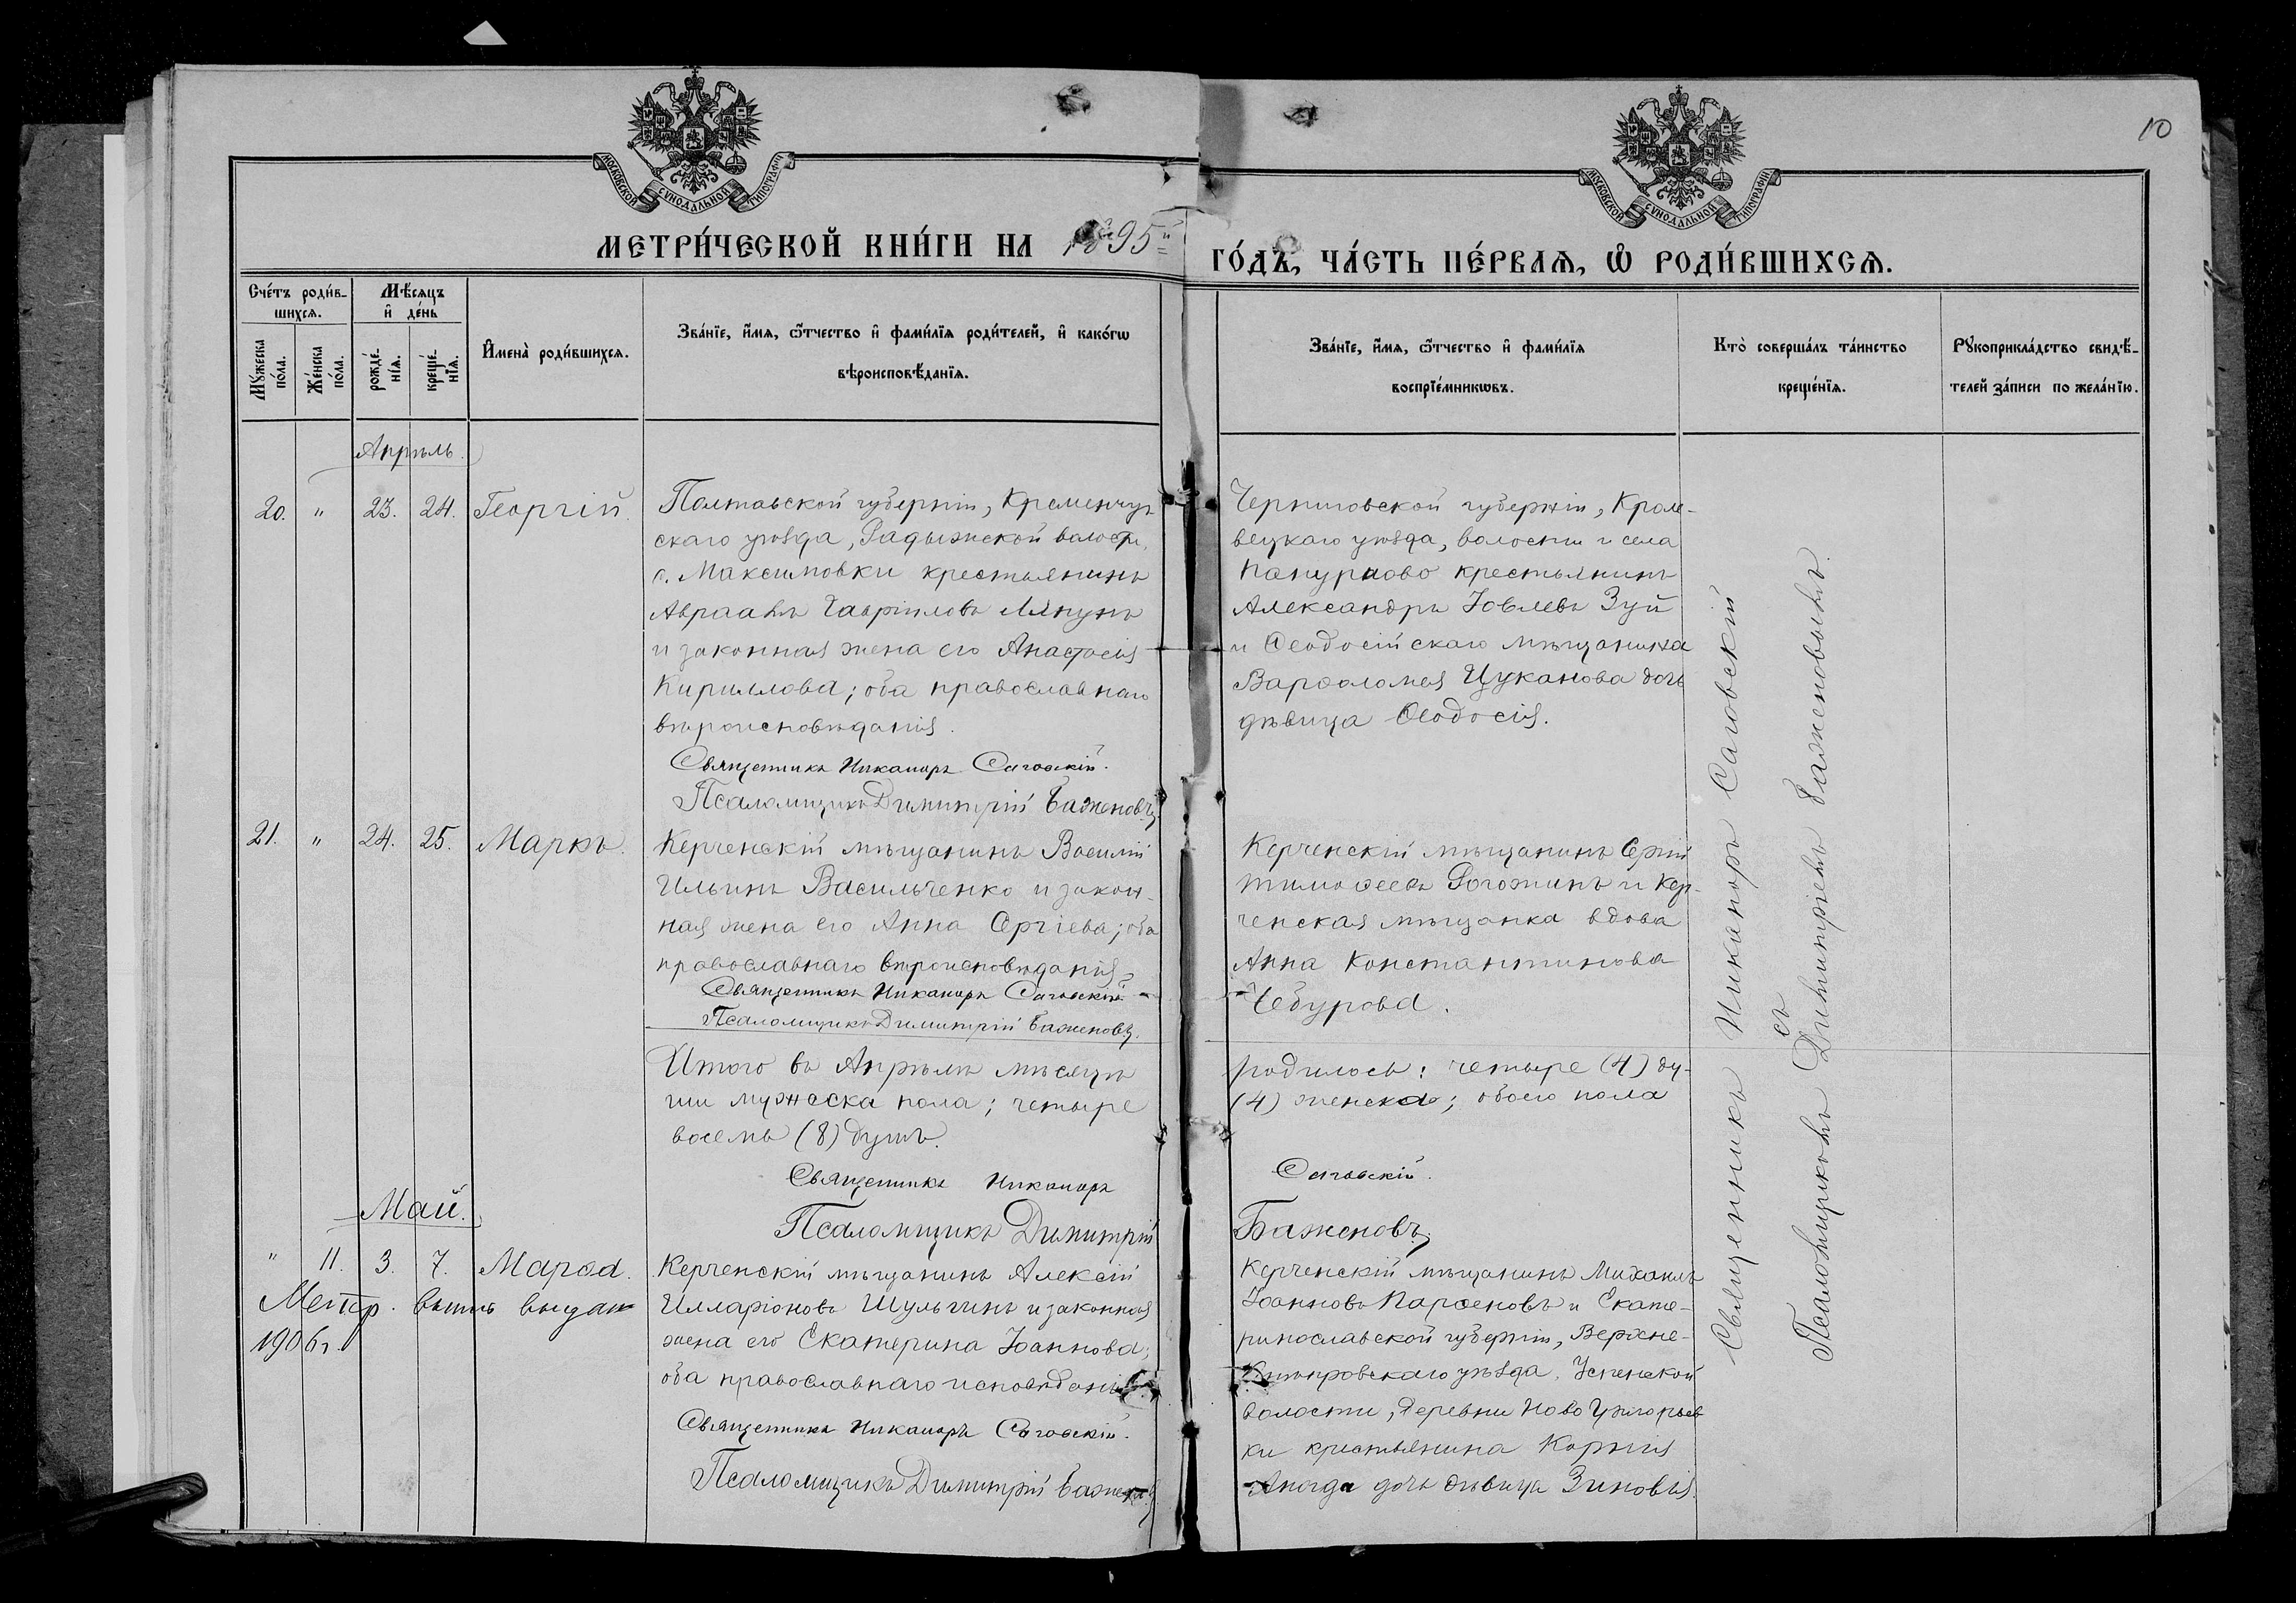 10
МОСКОВСКОЙ СѴНОДАЛЬНОЙ ТИПОГРАФІИ
МОСКОВСКОЙ СѴНОДАЛЬНОЙ ТИПОГРАФІИ
МЕТРИ́ЧЕСКОЙ КНИ́ГИ НА 1895й
ГО́ДЪ, ЧА́СТЬ ПЕ́РВАѦ, Ѡ РОДИ́ВШИХСѦ.
Сче́тъ роди́вшихсѧ.
Му́жеска по́ла.
Же́нска по́ла.
Мѣ́сѧцъ и҆ де́нь
рожде́нїѧ.
креще́нїѧ.
И҆мена̀ роди́вшихсѧ.
Зва́нїе, и҆́мѧ, ѻ҆́тчество и҆ фами́лїѧ роди́телей, и҆ како́гѡ
вѣроисповѣ́данїѧ.
Зва́нїе, и҆́мѧ, ѻ҆́тчество и҆ фами́лїѧ
воспрїе́мникѡвъ.
Кто̀ соверша́лъ та́инство
креще́нїѧ.
Рꙋкоприкла́дство свидѣ́-
телей за́писи по жела́нїю.
Апрѣль.
20. " 23. 24. Георгій.
Полтавской губерніи, Кременчуг-
скаго уѣзда, Гадыжской волости,
с. Максимовки крестьянинъ
Авраамъ Гавріиловъ Ляпунъ
и законная жена его Анастасія
Кириллова; оба православнаго
вѣроисповѣданія.
Священникъ Никаноръ Саговскій.
Псаломщикъ Димитрій Баженовъ.
Черниговской губерніи, Кроле-
вецкаго уѣзда, волости и села
крестьянинъ
Александръ Іовлевъ Зуй
и Ѳеодосійскаго мѣщанина
Варѳоломея Цуканова дочь
дѣвица Ѳеодосія.
21. " 24. 25. Маркъ.
Керченскій мѣщанинъ Василій
Ильинъ Васильченко и закон-
ная жена его Анна Сергіева; оба
православнаго вѣроисповѣданія.
Священникъ Никаноръ Саговскій
Псаломщикъ Димитрій Баженовъ.
Керченскій мѣщанинъ Сергій
Тимоѳеевъ Рогожинъ и Кер-
ченская мѣщанка вдова
Анна Константинова
Чебурова.
Итого въ Апрѣлѣ мѣсяцѣ
родилось: четыре (4) ду-
ши мужеска пола; четыре
(4) женска; обоего пола
восемь (8) душъ.
Священникъ Никаноръ
Саговскій.
Псаломщикъ Димитрій
Баженовъ.
Май.
" 11. 3. 7. Марѳа.
Метр. выпись выдан
1906 г.
Керченскій мѣщанинъ Алексій
Илларіоновъ Шульгинъ и законная
жена его Екатерина Іоаннова;
оба православнаго исповѣданія.
Священникъ Никаноръ Саговскій.
Псаломщикъ Димитрій Баженовъ
Керченскій мѣщанинъ Михаилъ
Іоанновъ Парѳеновъ и Екате-
ринославской губерніи, Верхне-
Днѣпровскаго уѣзда, Успенской
волости, деревни Ново Григорьев-
ки крестьянина Корнія
дочь дѣвица Зиновія.
Священникъ Никаноръ Саговскій
съ
Псаломщикомъ Димитріемъ Баженовымъ.